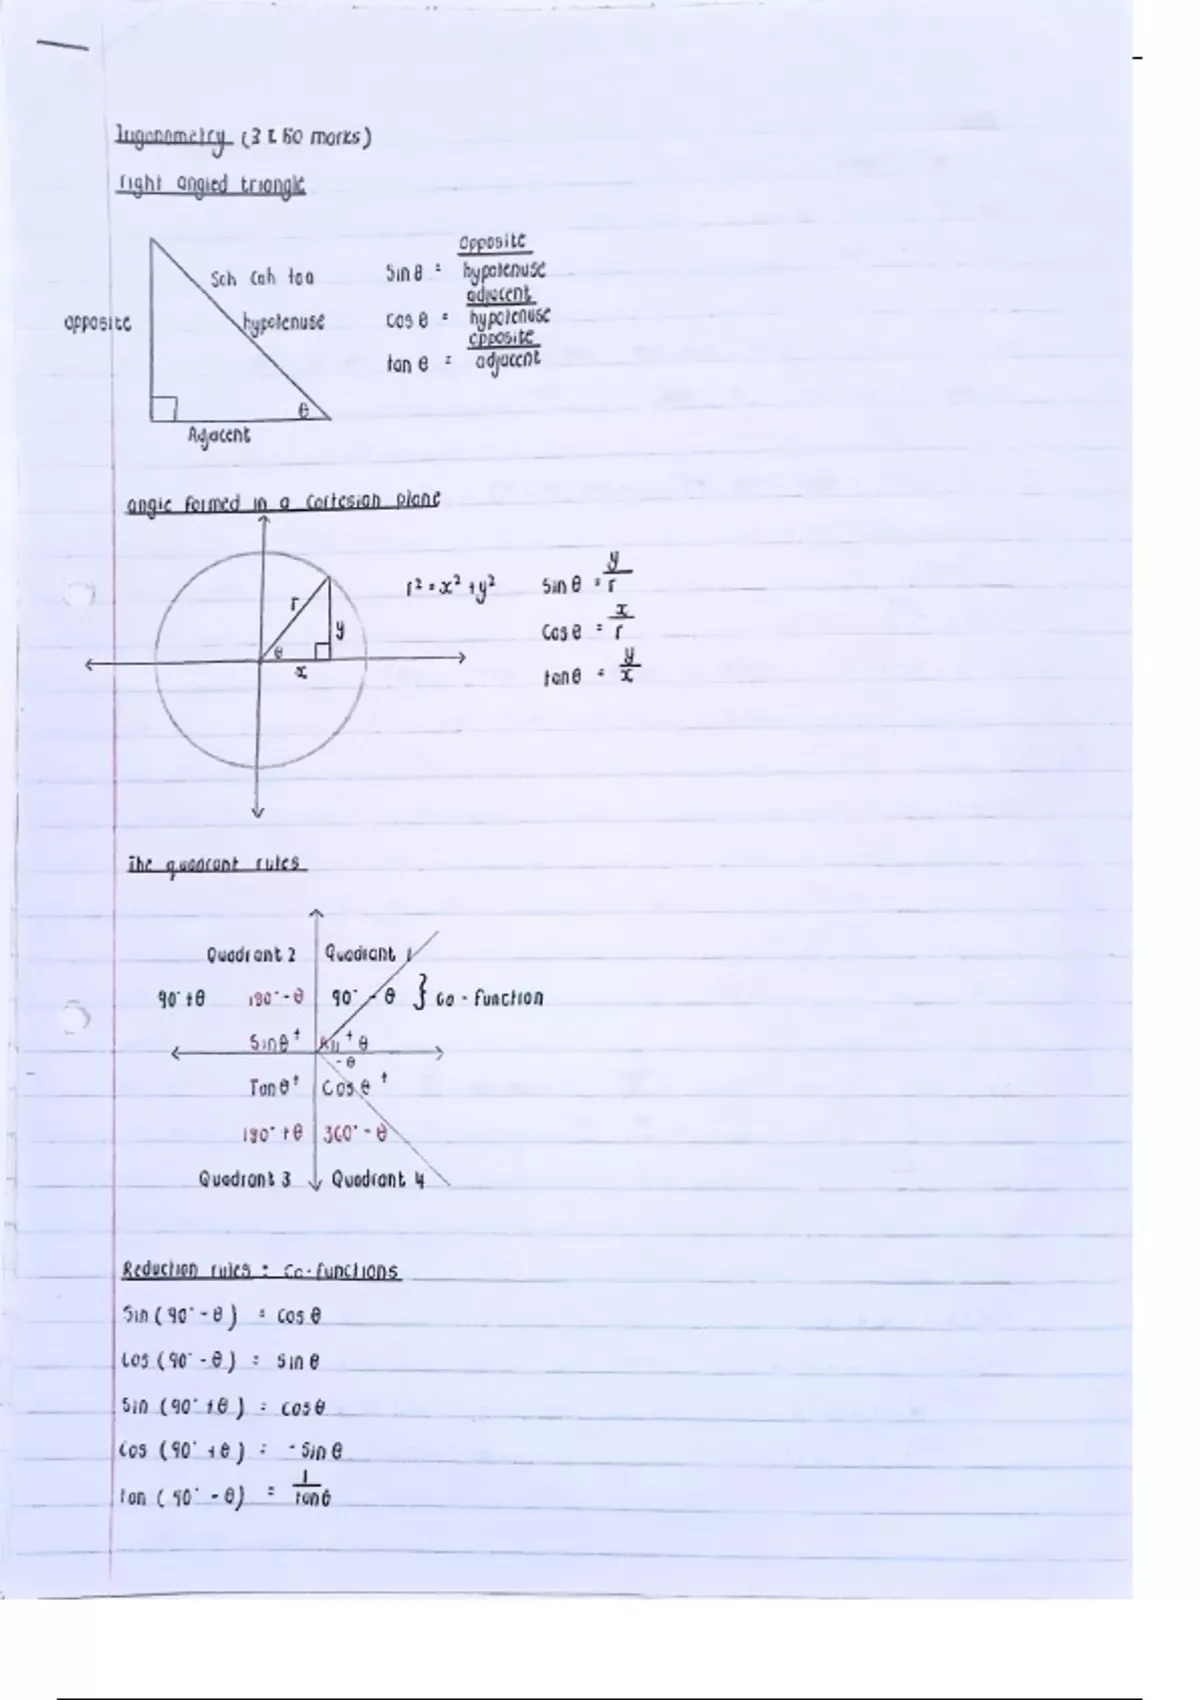 Trigonometry (3 ± 60 marks)
right angled triangle
Soh Cah toa
opposite
hypotenuse
θ
Adjacent
Sin θ = opposite / hypotenuse
cos θ = adjacent / hypotenuse
tan θ = opposite / adjacent
angle formed in a cartesian plane
r
y
θ
x
r² = x² + y²
Sin θ = y / r
Cos θ = x / r
tan θ = y / x
The quadrant rules
Quadrant 2 Quadrant 1
90° + θ 180° - θ 90° - θ } Co - function
Sin θ⁺ All⁺ θ
- θ
Tan θ⁺ Cos θ⁺
180° + θ 360° - θ
Quadrant 3 Quadrant 4
Reduction rules : Co-functions
Sin (90° - θ) = cos θ
Cos (90° - θ) = sin θ
Sin (90° + θ) = cos θ
Cos (90° + θ) = - Sin θ
tan (90° - θ) = 1 / tan θ